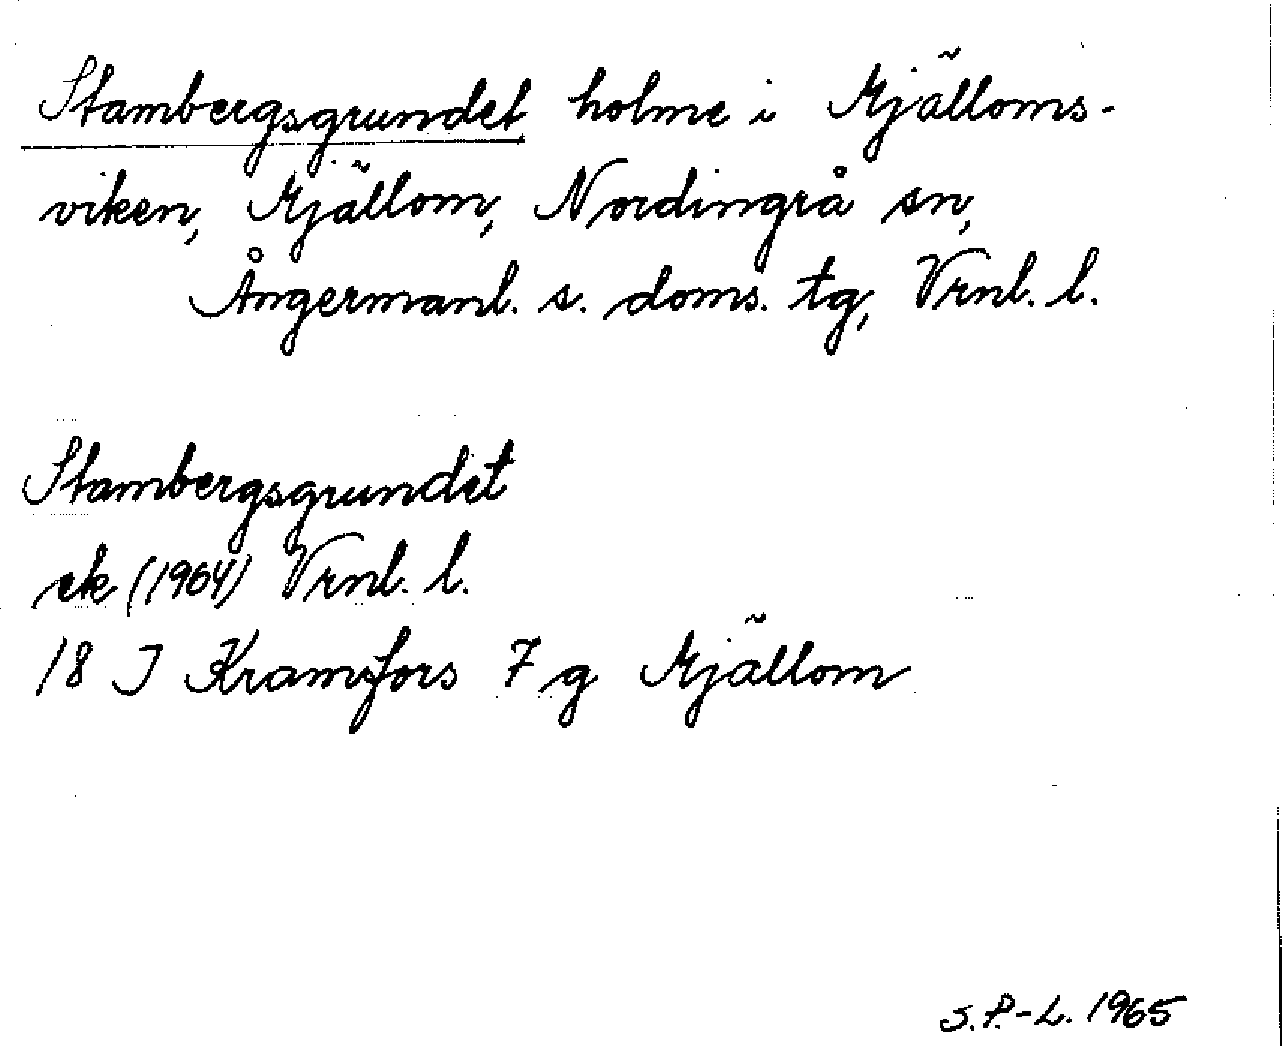 Stambergsgrundet holme i Mjälloms-
viken, Mjällom, Nordingrå sn,
Ångermanl. s. doms. tg, Vrnl. l.
Stambergsgrundet
ek (1964) Vrnl. l.
18 J Kramfors 7 g Mjällom
S.P.-L. 1965